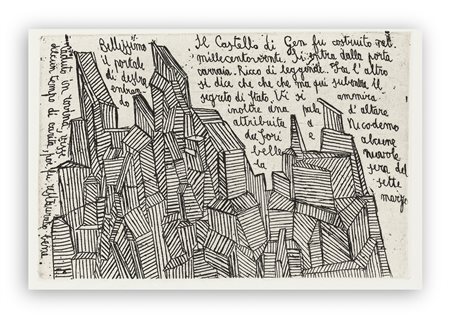 Bellissimo
il portale
di destra
entran
do
Il Castello di Gen fu costruito nel
millecentoventi. Si entra dalla porta
carraia. Ricco di leggende. Fra l'altro
si dice che che ma qui subentra il
segreto di Stato. Vi si ammira
inoltre una pala d'altare
attribuita a Nicodemo
da Fori d e alcune
belle nuvole
la sera del
sette